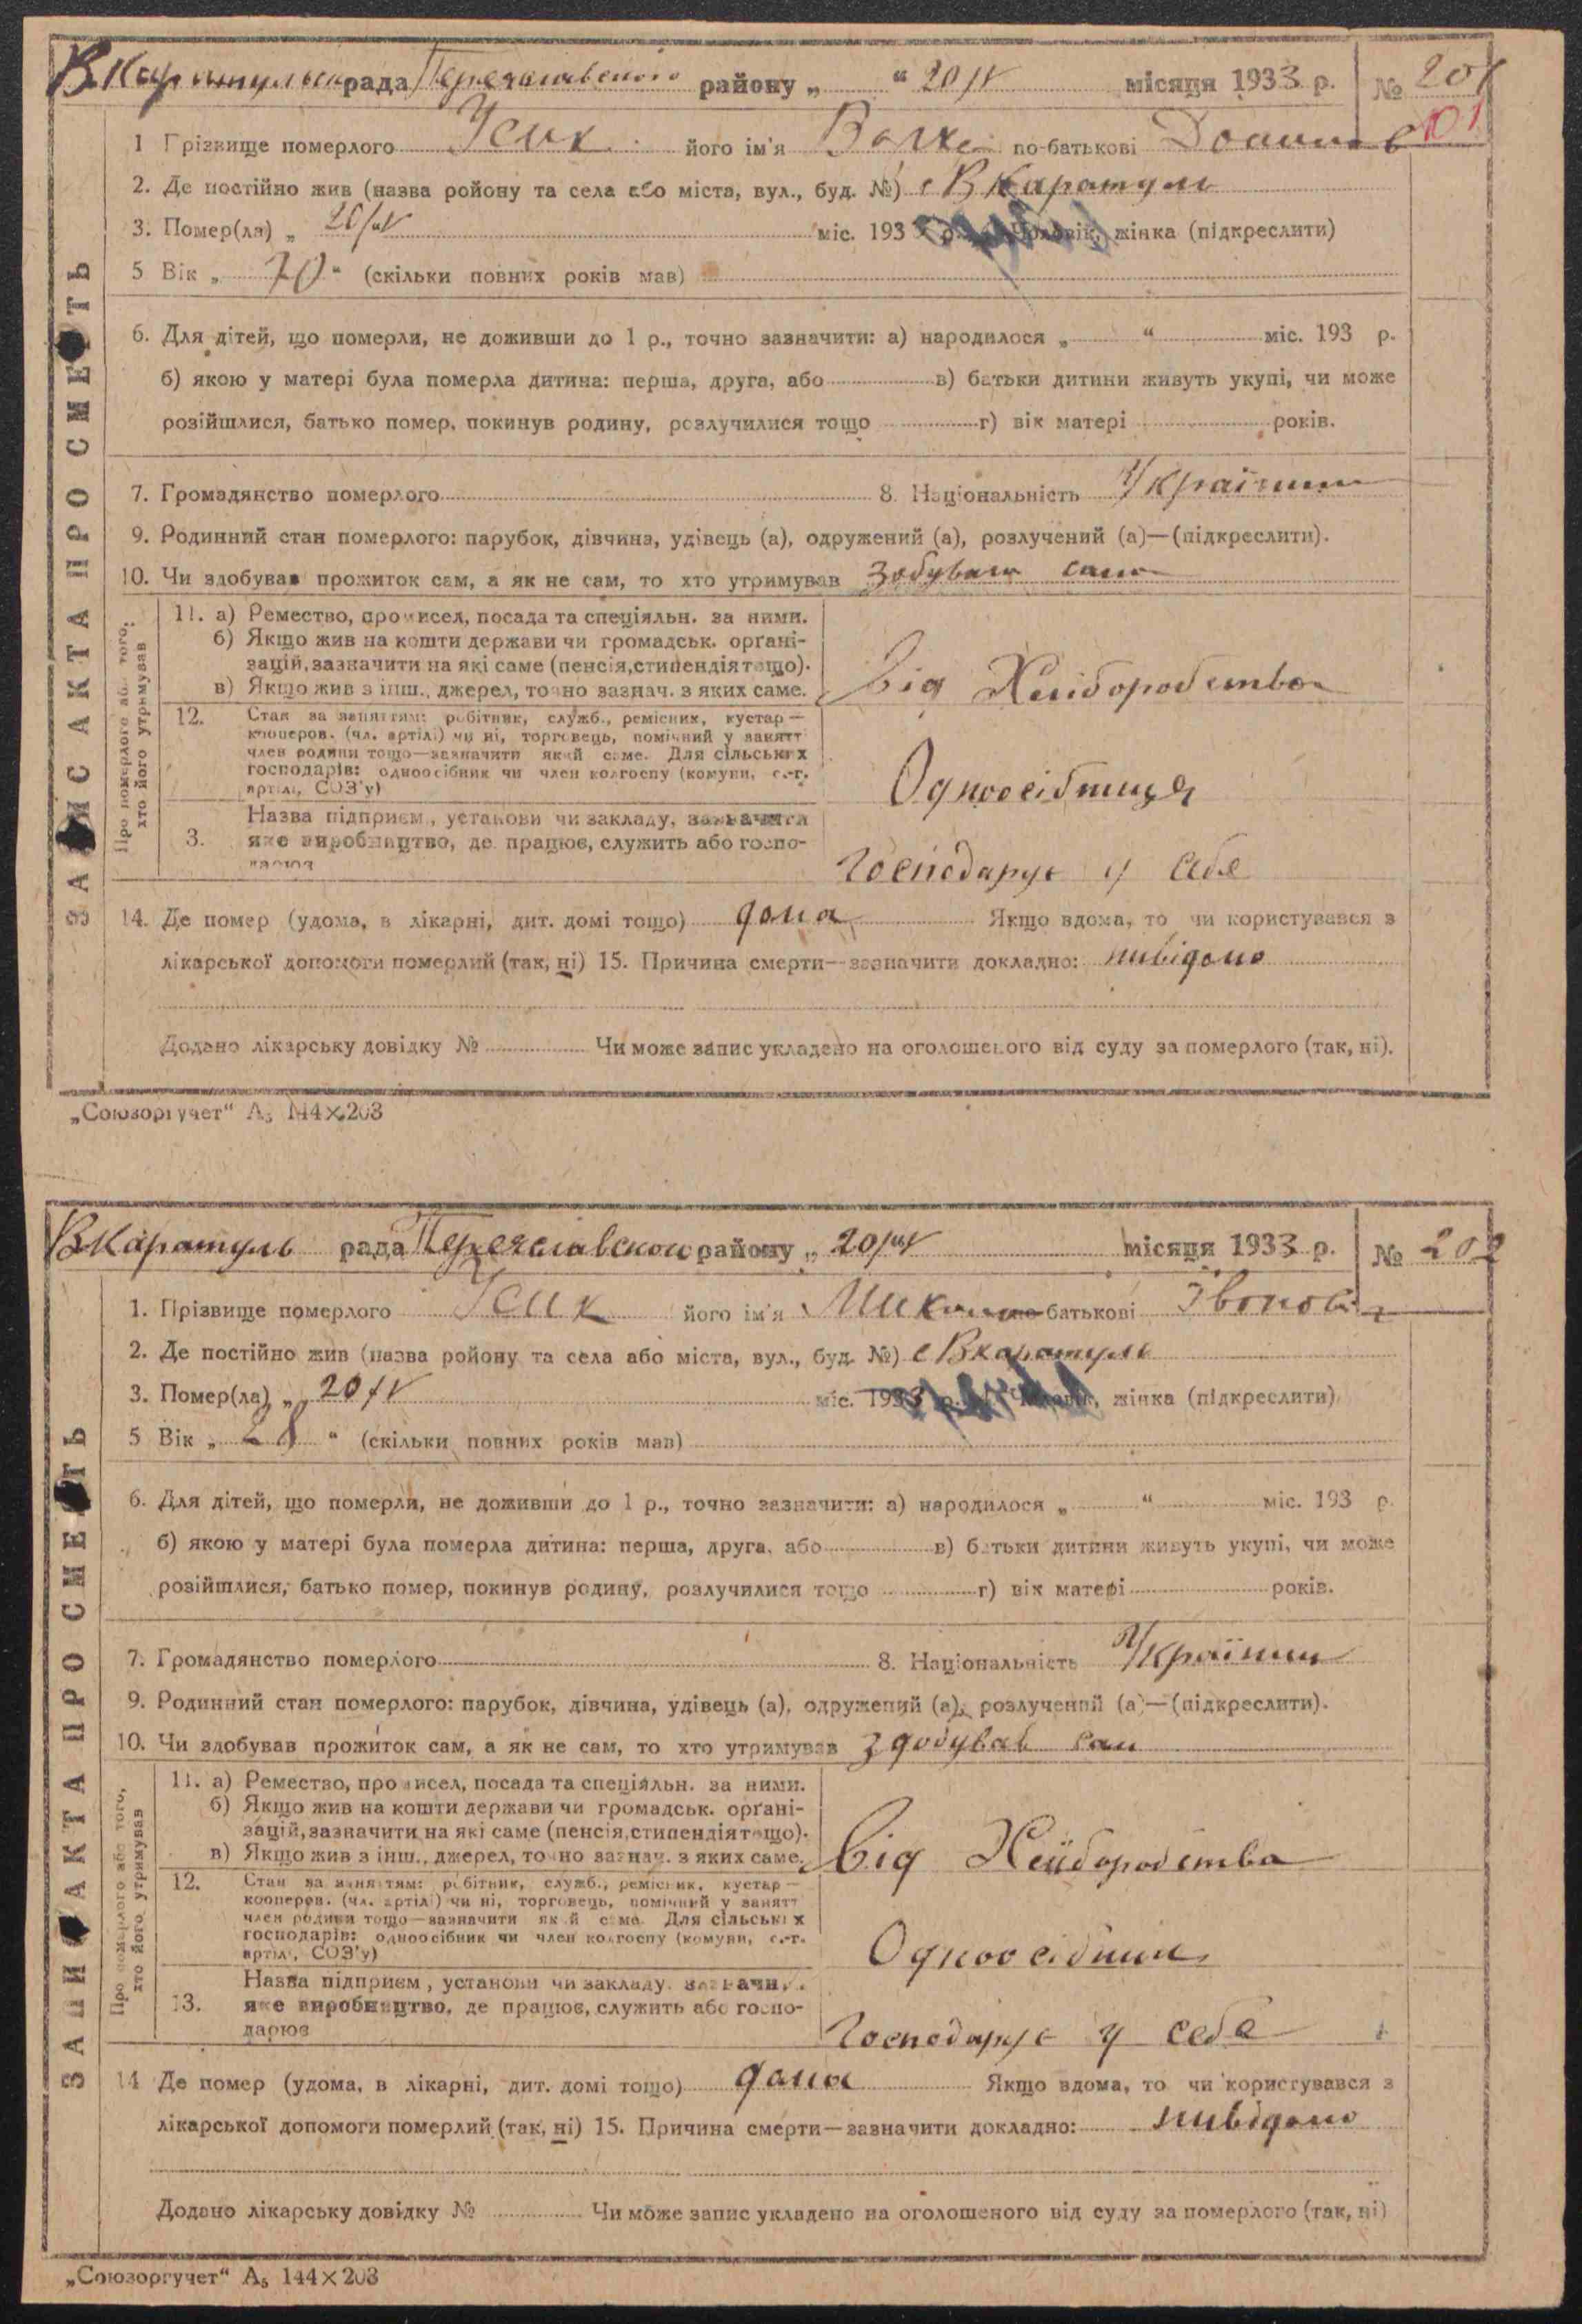 ВКаратульська рада Переяславського району „ “ 20/IV місяця 1933 р. № 201
101
1 Прізвище померлого Усик його ім'я по-батькові
2. Де постійно жив (назва ройону та села або міста, вул., буд. №) с ВКаратуль
3. Помер(ла) „ 20/IV міс. 193 р. Чоловік, жінка (підкреслити)
5 Вік „ 70 “ (скільки повних років мав)
6. Для дітей, що померли, не доживши до 1 р., точно зазначити: а) народилося „ “ міс. 193 р.
б) якою у матері була померла дитина: перша, друга, або в) батьки дитини живуть укупі, чи може
розійшлися, батько помер, покинув родину, розлучилися тощо г) вік матері років.
7. Громадянство померлого 8. Національність
9. Родинний стан померлого: парубок, дівчина, удівець (а), одружений (а), розлучений (а)—(підкреслити).
10. Чи здобував прожиток сам, а як не сам, то хто утримував Зобувала сама
ЗАПИС АКТА ПРО СМЕРТЬ
Про померлого або того, хто його утримував
11. а) Ремество, промисел, посада та спеціяльн. за ними.
б) Якщо жив на кошти держави чи громадськ. орґані-
зацій, зазначити на які саме (пенсія, стипендія тощо).
в) Якщо жив з інш., джерел, точно зазнач. з яких саме.
від Хлібороб ства
12. Стан за заняттям: робітник, служб., ремісник, кустар —
кооперов. (чл. артілі) чи ні, торговець, помічний у занятт
член родини тощо—зазначити який саме. Для сільських
господарів: одноосібник чи член колгоспу (комуни, с.-г.
артілі, СОЗ'у)
Одноосібниця
3. Назва підприєм., установи чи закладу, зазначити
яке виробництво, де працює, служить або госпо-
дарює
Господарує у себе
14. Де помер (удома, в лікарні, дит. домі тощо) дома Якщо вдома, то чи користувався з
лікарської допомоги померлий (так, ні) 15. Причина смерти—зазначити докладно: нивідомо
Додано лікарську довідку № Чи може запис укладено на оголошеного від суду за померлого (так, ні).
„Союзоргучет“ А₅ 144×203
ВКаратуль рада Переяславською району „ 20/IV місяця 1933 р. № 202
1. Прізвище померлого Усик його ім'я Микола по-батькові
2. Де постійно жив (назва ройону та села або міста, вул., буд. №) с Вкаратуль
3. Помер(ла) „ 20/IV міс. 1933 р. Чоловік, жінка (підкреслити)
5 Вік „ 28 “ (скільки повних років мав)
6. Для дітей, що померли, не доживши до 1 р., точно зазначити: а) народилося „ “ міс. 193 р.
б) якою у матері була померла дитина: перша, друга, або в) батьки дитини живуть укупі, чи може
розійшлися, батько помер, покинув родину, розлучилися тощо г) вік матері років.
7. Громадянство померлого 8. Національність
9. Родинний стан померлого: парубок, дівчина, удівець (а), одружений (а), розлучений (а)—(підкреслити).
10. Чи здобував прожиток сам, а як не сам, то хто утримував здобував сам
ЗАПИС АКТА ПРО СМЕРТЬ
Про померлого або того, хто його утримував
11. а) Ремество, промисел, посада та спеціяльн. за ними.
б) Якщо жив на кошти держави чи громадськ. орґані-
зацій, зазначити на які саме (пенсія, стипендія тощо).
в) Якщо жив з інш., джерел, точно зазнач. з яких саме.
від Хлібороб ства
12. Стан за заняттям: робітник, служб., ремісник, кустар —
кооперов. (чл. артілі) чи ні, торговець, помічний у занятт
член родини тощо—зазначити який саме. Для сільських
господарів: одноосібник чи член колгоспу (комуни, с.-г.
артілі, СОЗ'у)
Одноосібник
13. Назва підприєм., установи чи закладу, зазначи
яке виробництво, де працює, служить або госпо-
дарює
Господарує у себе
14 Де помер (удома, в лікарні, дит. домі тощо) дома Якщо вдома, то чи користувався з
лікарської допомоги померлий (так, ні) 15. Причина смерти—зазначити докладно: нивідомо
Додано лікарську довідку № Чи може запис укладено на оголошеного від суду за померлого (так, ні)
„Союзоргучет“ А₅ 144×203